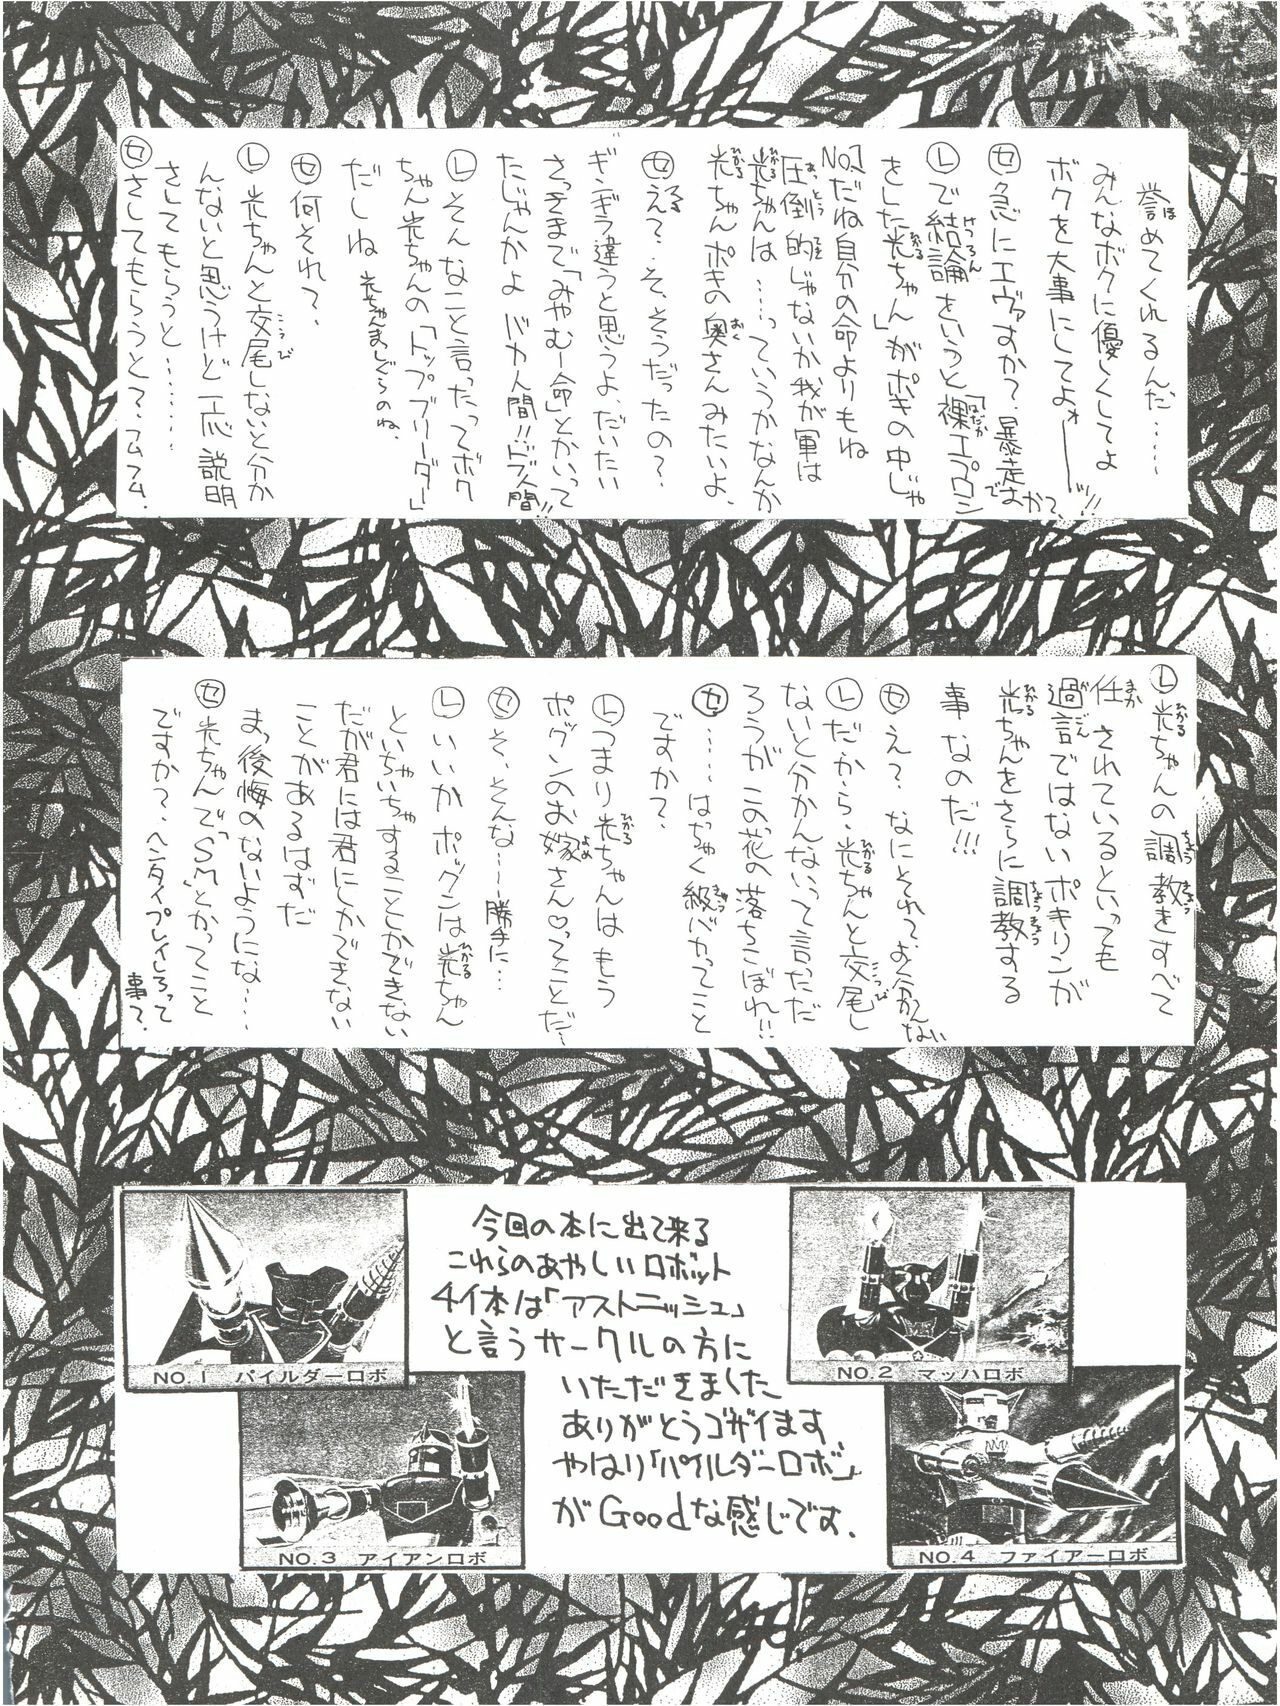 誉めてくれるんだ……
みんなボクに優しくしてよ
ボクを大事にしてよォーーッ!!
セ 急にエヴァすか?暴走すか?
レ で結論をいうと「裸エプロン
をした光ちゃん」がポキの中じゃ
NO.1だね自分の命よりもね
圧倒的じゃないか我が軍は
光ちゃんは……っていうかなんか
光ちゃんポキの奥さんみたいよ、
セ え?そ、そうだったの?
ギンギラ違うと思うよ、だいたい
さっきまで「みやむー命」とかいって
たじゃんかよ バカ人間!!ドブ人間!!
レ そんなこと言ったってボク
ちゃん光ちゃんの「トップブリーダー」
だしね 光ちゃんまっしぐらのね、
セ 何それ?
レ 光ちゃんと交尾しないと分か
んないと思うけど一応説明
さしてもらうと………
セ さしてもらうと?フムフム、
レ 光ちゃんの調教をすべて
任されているといっても
過言ではないポキリンが
光ちゃんをさらに調教する
事なのだ!!!
セ え?なにそれ?よく分かんない
レ だから、光ちゃんと交尾し
ないと分かんないって言っただ
ろうがこの花の落ちこぼれ!!
セ ……はぢゃく級バカってこと
ですか?
レ つまり光ちゃんはもう
ポックンのお嫁さん♡ってことだ〜
セ そ、そんな〜〜勝手に…
レ いいかポックンは光ちゃん
といちゃいちゃすることしかできない
だが君には君にしかできない
ことがあるはずだ
まっ後悔のないようにな……
セ 光ちゃんで“SM”とかってこと
ですか?ヘンタイプレイしろって
事?、
今回の本に出て来る
これらのあやしいロボット
4体は「アストニッシュ」
と言うサークルの方に
いただきました
ありがとうゴザイます
やはり「パイルダーロボ」
がGoodな感じです、
NO.1 パイルダーロボ
NO.2 マッハロボ
NO.3 アイアンロボ
NO.4 ファイアーロボ